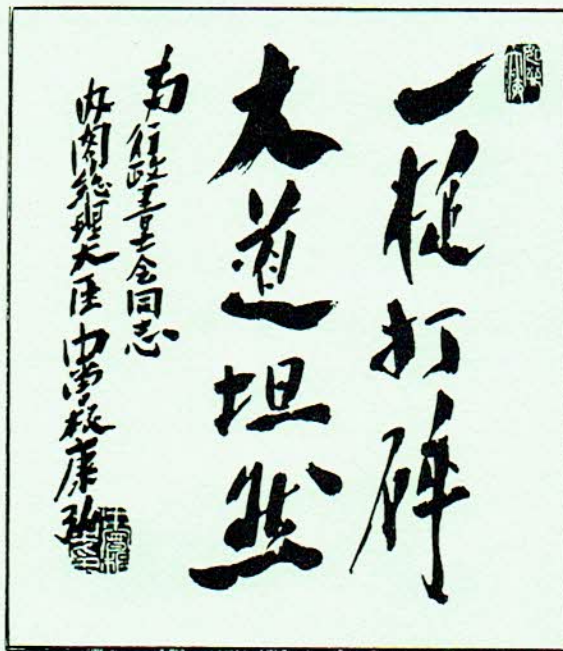 一槌打砕
大道坦然
為行政書士会同志
内閣総理大臣中曽根康弘